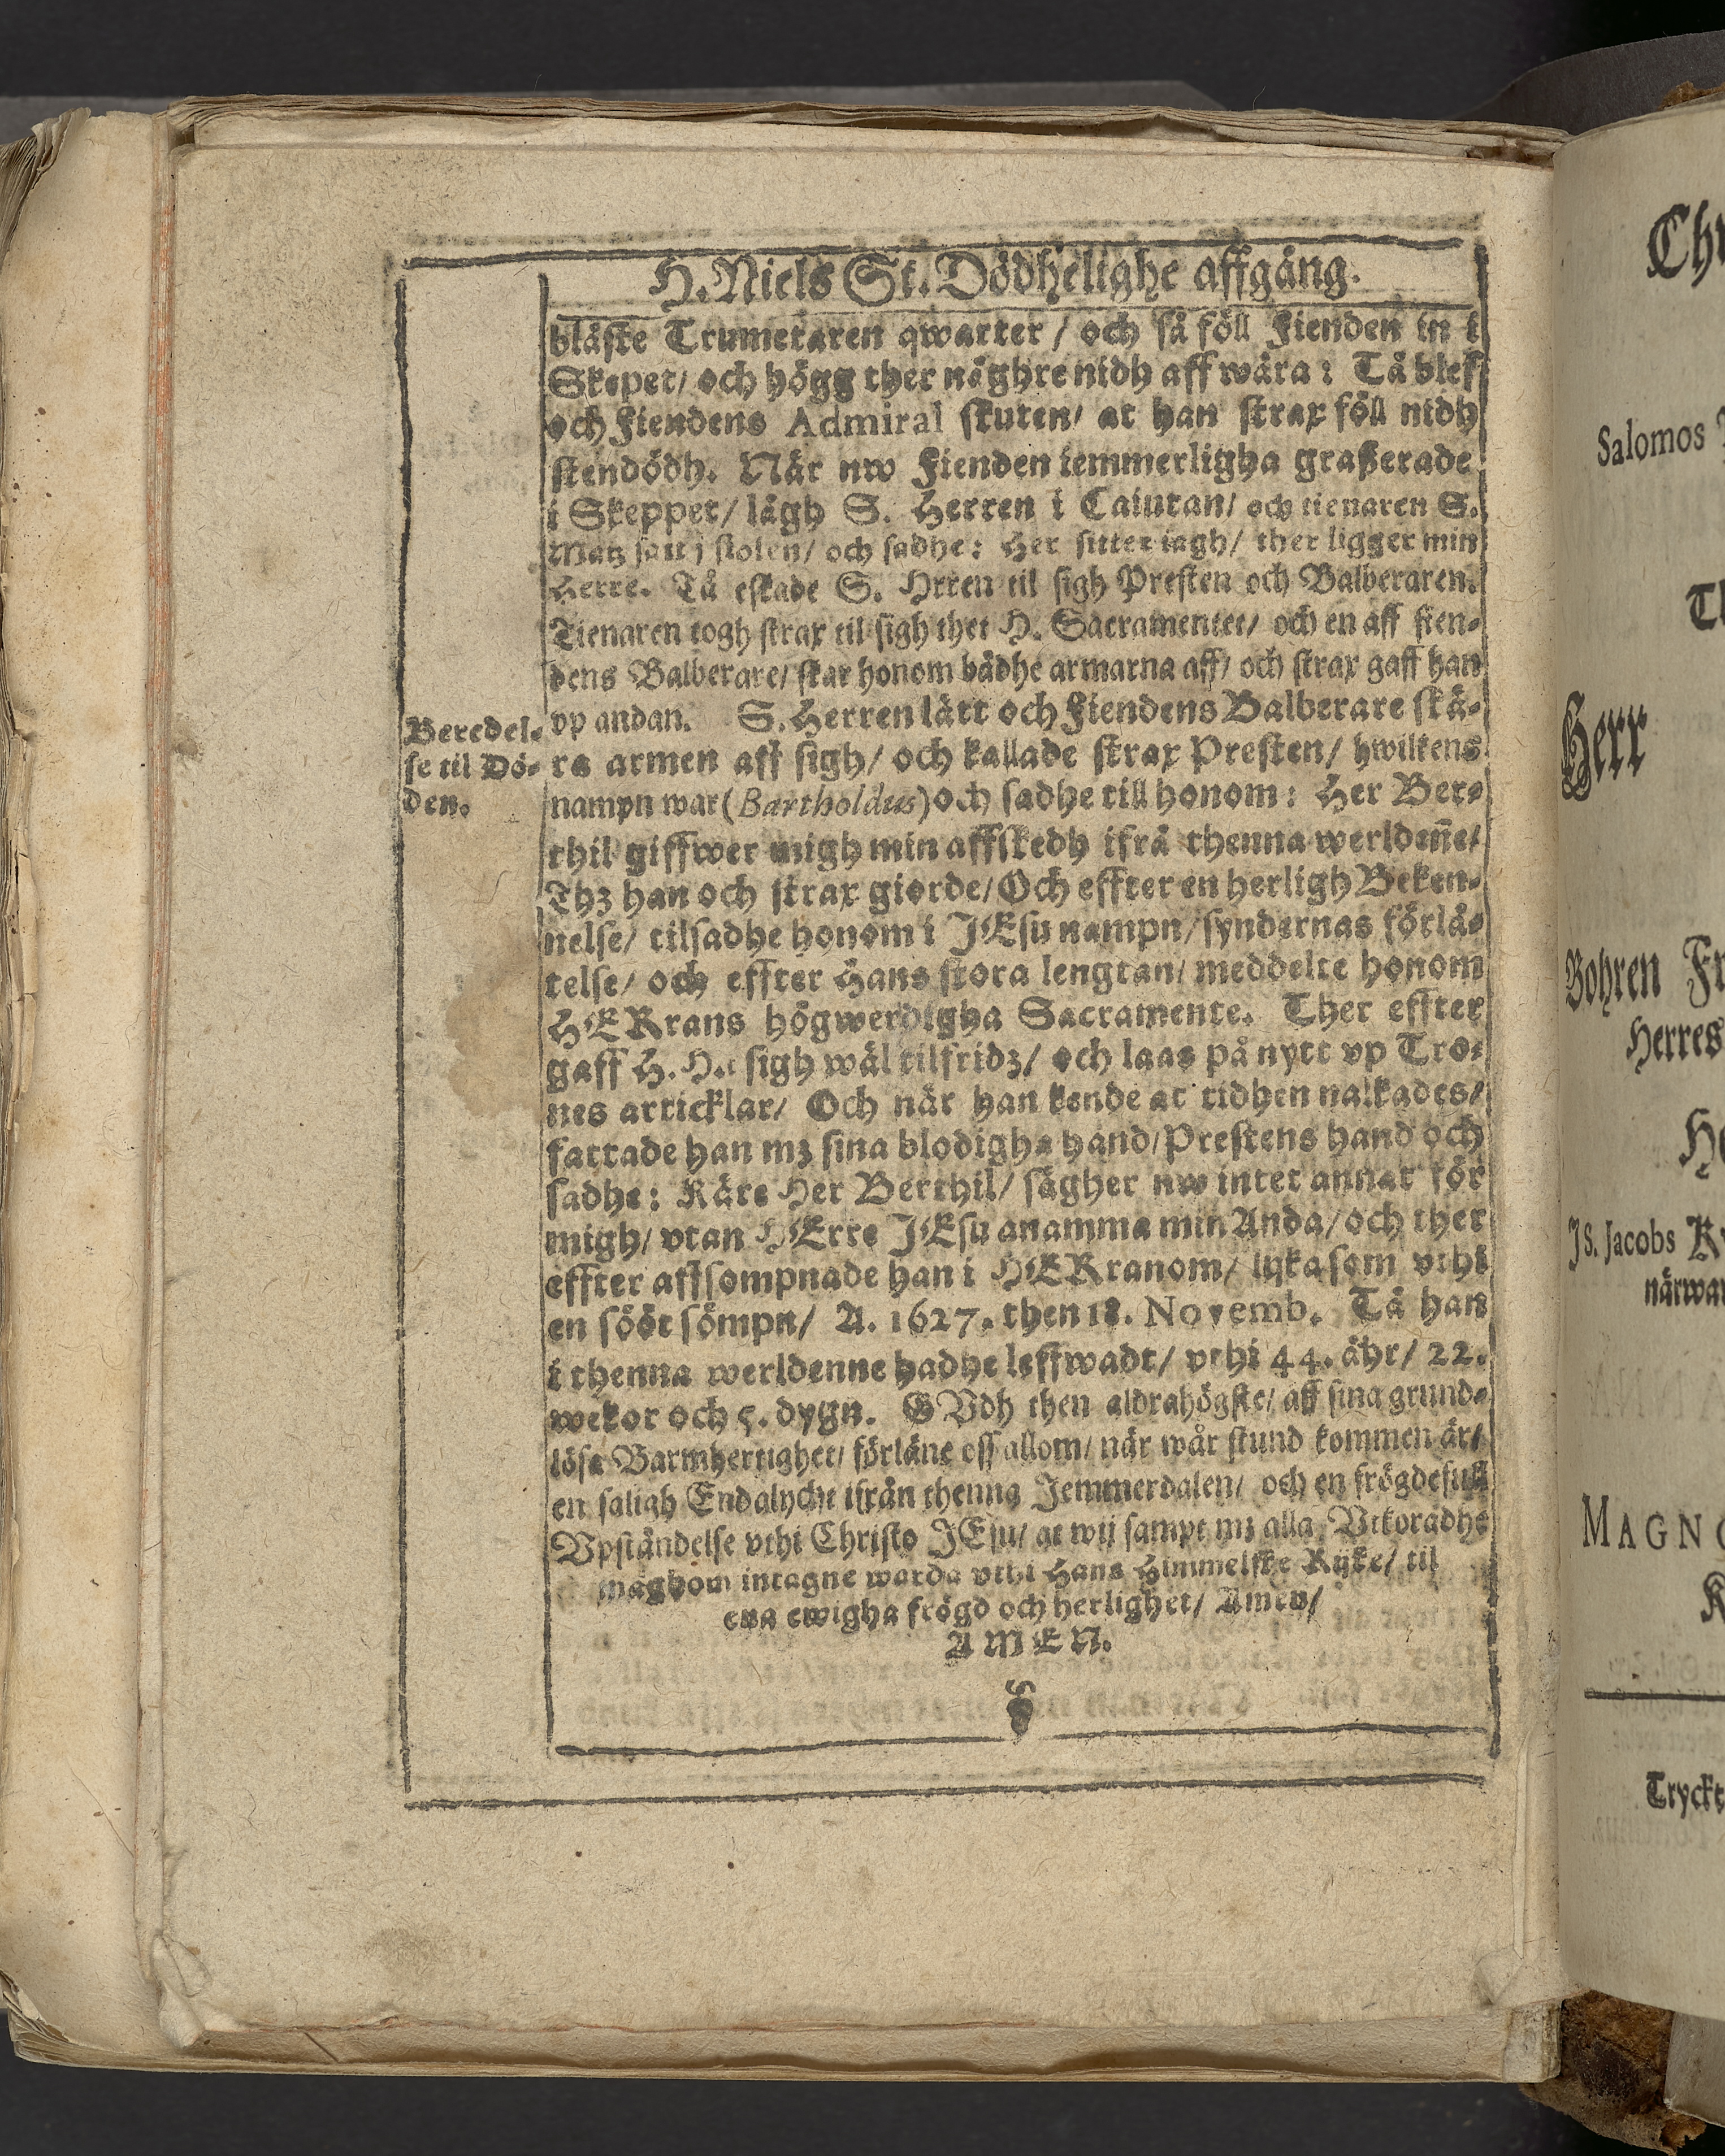 H. Niels St. Dödhelighe affgång.
blåste Trumetaren qwarter / och så föll Fienden in i
Skepet / och högg ther någhre nidh aff wåra : Tå blef
och Fiendens Admiral skuten / at han strax föll nidh
stendödh. När nw Fienden iemmerligha graßerade
i Skeppet / lågh S. Herren i Caiutan / och tienaren S.
Matz satt j stolen / och sadhe : Her sitter iagh / ther ligger min
Herre. Tå eskade S. Hrren til sigh Presten och Balberaren.
Tienaren togh strax til sigh thet H. Sacramentet / och en aff fien-
dens Balberare / skar honom bådhe armarna aff / och strax gaff han
vp andan. S. Herren lätt och Fiendens Balberare skä-
ra armen aff sigh / och kallade strax Presten / hwilkens
nampn war (Bartholdus) och sadhe till honom : Her Ber-
thil giffwer migh min affskedh ifrå thenna werldeñe /
Thz han och strax giorde / Och effter en herligh Beken-
nelse / tilsadhe honom i JEsu nampn / syndernas förlå-
telse / och effter Hans stora lengtan / meddelte honom
HERrans högwerdigha Sacramente. Ther effter
gaff H. H. sigh wäl tilfridz / och laas på nytt vp Tro-
nes articklar / Och när han kende at tidhen nalkades /
fattade han mz sina blodigha hand / Prestens hand och
sadhe : Käre Her Berthil / sägher nw intet annat för
migh / vtan HErre JEsu anamma min Anda / och ther
effter affsompnade han i HERranom / lijka som vthi
en sööt sömpn / A. 1627. then 18. Novemb. Tå han
i thenna werldenne hadhe leffwadt / vthi 44. åhr / 22.
wekor och 5. dygn. GVdh then aldrahögste / aff sina grund-
lösa Barmhertighet / förläne oss allom / när wår stund kommen är /
en saligh Endalycht ifrån thenna Jemmerdalen / och en frögdefull
Vpståndelse vthi Christo JEsu / at wij sampt mz alla Vtkoradhe
måghom intagne warda vthi Hans Himmelske Rijke / til
ena ewigha frögd och herlighet / Amen /
AMEN.
Beredel-
se til Dö-
den.
Salomos
Herr
Bohren
Herres
Js. Jacobs
MAGNO